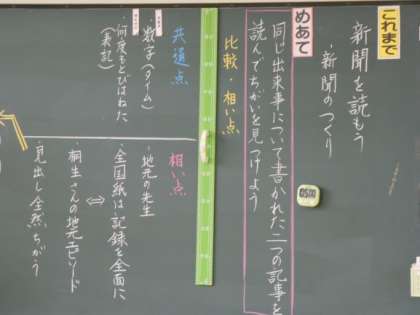 これまで
新聞を読もう
・新聞のつくり
めあて
同じ出来事について書かれた二つの記事を
読んでちがいを見つけよう
比較・相い点
共通点
・数字(タイム)
・何度もとびはねた
(表記)
相い点
・地元の先生
・全国紙は記録を全面に
⇔
桐生さんの地元エピソード
・見出し全然ちがう